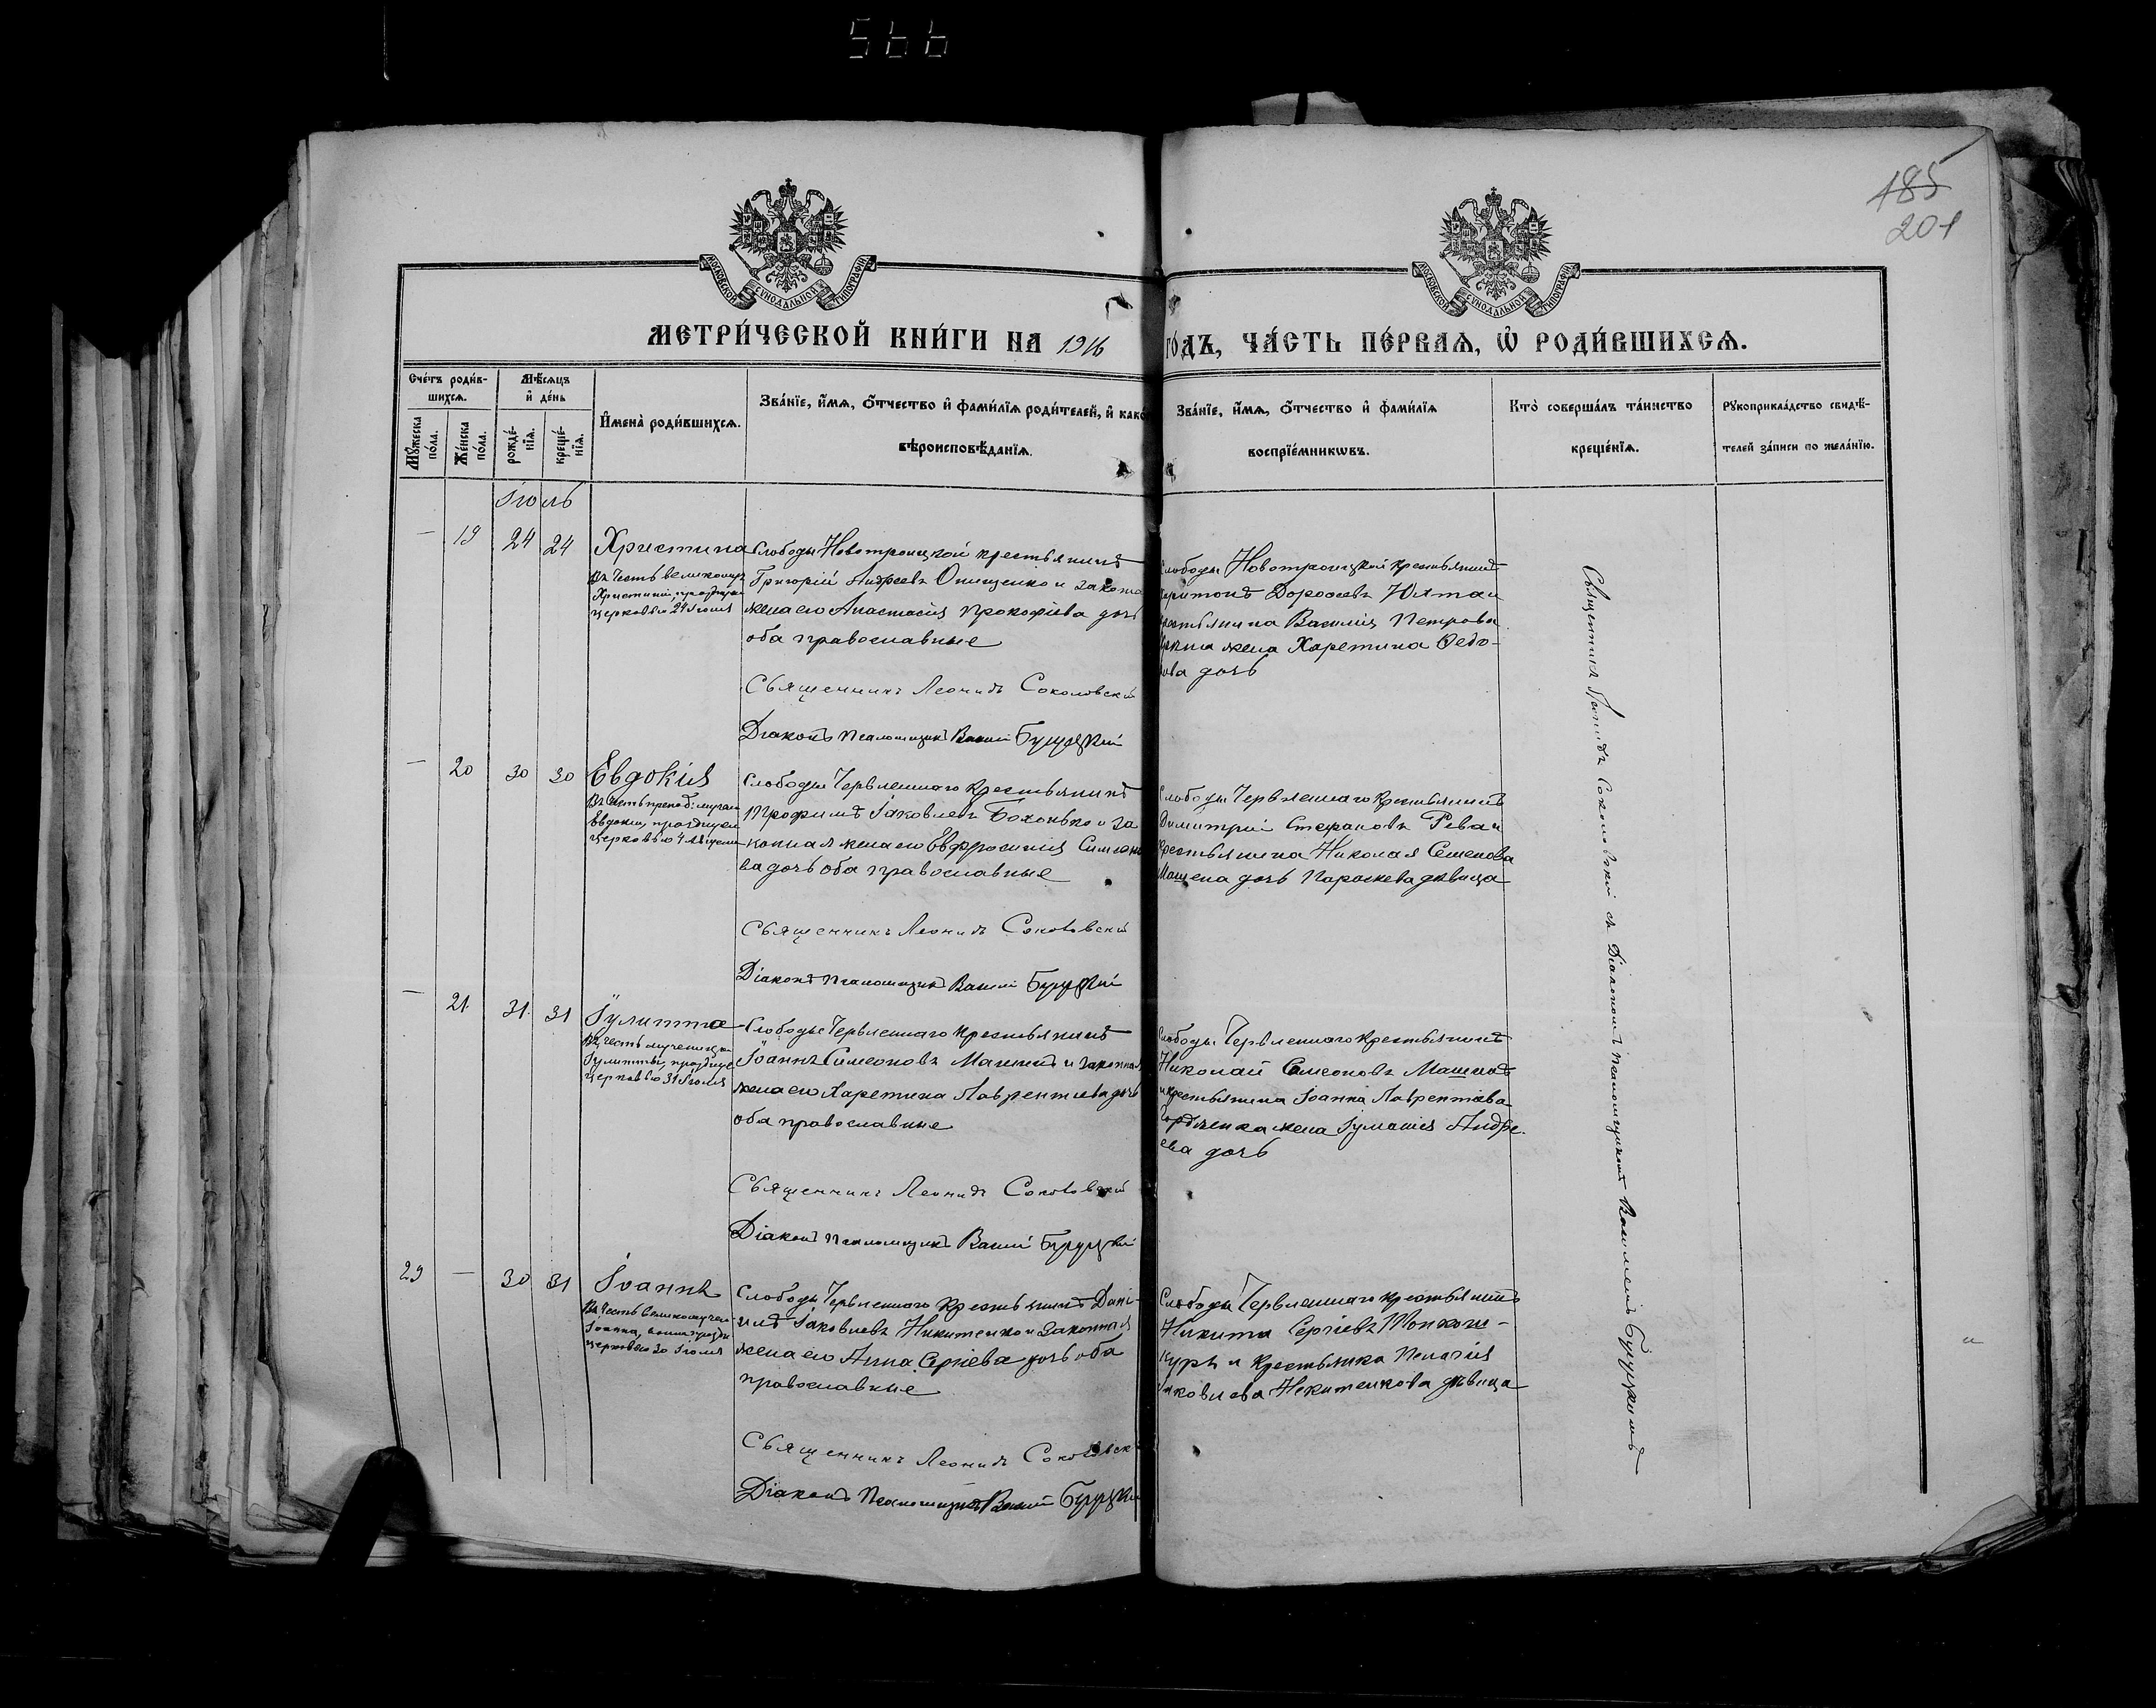 566
185
201
МОСКОВСКОЙ СУНОДАЛЬНОЙ ТИПОГРАФІИ
МОСКОВСКОЙ СУНОДАЛЬНОЙ ТИПОГРАФІИ
МЕТРИ́ЧЕСКОЙ КНИ́ГИ НА 1916 ГО́ДЪ, ЧА́СТЬ ПЕ́РВАѦ, Ѡ҆ РОДИ́ВШИХСѦ.
Сче́тъ роди́в-
шихсѧ.
Мꙋ́жеска по́ла.
Же́нска по́ла.
Мѣ́сѧцъ
и҆ де́нь
рожде́-
нїѧ.
креще́-
нїѧ.
И҆мена̀ роди́вшихсѧ.
Зва́нїе, и҆́мѧ, ѻ҆́тчество и҆ фами́лїѧ роди́телей, и҆ како
вѣроисповѣ́данїѧ.
Зва́нїе, и҆́мѧ, ѻ҆́тчество и҆ фами́лїѧ
воспрїе́мникѡвъ.
Кто̀ соверша́лъ та́инство
креще́нїѧ.
Рꙋкоприкла́дство свидѣ́-
телей за́писи по жела́нїю.
Іюль
— 19 24 24 Христина
Въ честь великомуч
Христины, празднуем
церковью 24 Іюля
Слободы Новотроицкой крестьянинъ
Григорій Андреевъ Онищенко и закона
жена его Анастасія Прокофіева дочь
оба православные
Священникъ Леонидъ Соколовскій
Діаконъ псаломщикъ Василій
слободы Новотроицкой крестьянинъ
Харитонъ Дороѳеевъ
крестьянина Василія Петрова
жена Харетина Ѳедо-
рова дочь
— 20 30 30 Евдокія
Въ честь препод: мучен
Евдокіи, празднуем
церковью 4 Августа
Слободы Червленнаго крестьянинъ
Трофимъ Іаковлевъ Бохонько и за
конная жена его Евфросинія Симеоно
ва дочь оба православные
Священникъ Леонидъ Соколовскій
Діаконъ псаломщикъ Василій
Слободы Червленнаго крестьянинъ
Димитрій Стефановъ Реван
крестьянина Николая Семенова
Машена дочь Параскева дѣвица
— 21 31 31 Іулитта
Въ честь мученицы
Іулитты, праздnуе
церковью 31 Іюля
Слободы Червленнаго крестьянинъ
Іоаннъ Симеоновъ и законная
жена его Харетина Лаврентиева дочь
оба православные
Священникъ Леонидъ Соколовскій
Діаконъ псаломщикъ Василій
Слободы Червленнаго крестьянинъ
Николай Симеоновъ
и крестьянина Іоанна Лаврентіева
жена Андре-
ева дочь
29 — 30 31 Іоаннъ
Въ честь великомучен
Іоанна, воина праздн
церковью 30 Іюля
Слободы Червленнаго крестьянинъ Дані-
илъ Іаковлевъ Никитенко и законная
жена его Анна Сергіева дочь оба
православные
Священникъ Леонидъ Соколовск
Діаконъ псаломщикъ Василій
Слободы Червленнаго крестьянинъ
Никита Сергіевъ
и крестьянка Пелагія
Іаковлева Некитенкова дѣвица
Священникъ Леонидъ Соколовскій съ Діакономъ псаломщикомъ Василіемъ